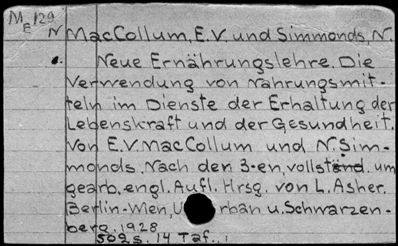 M 129
E
N MacCollum, E.V. und Simmonds, N.
Neue Ernährungslehre. Die
Verwendung von Nahrungsmit-
teln im Dienste der Erhaltung der
Lebenskraft und der Gesundheit.
Von E.V. MacCollum und N. Sim-
monds. Nach den 3-en, vollständ. um
gearb. engl. Aufl. Hrsg. von L. Asher.
Berlin-Wien, U rban u. Schwarzen-
berg. 1928.
502 s. 14 Taf.